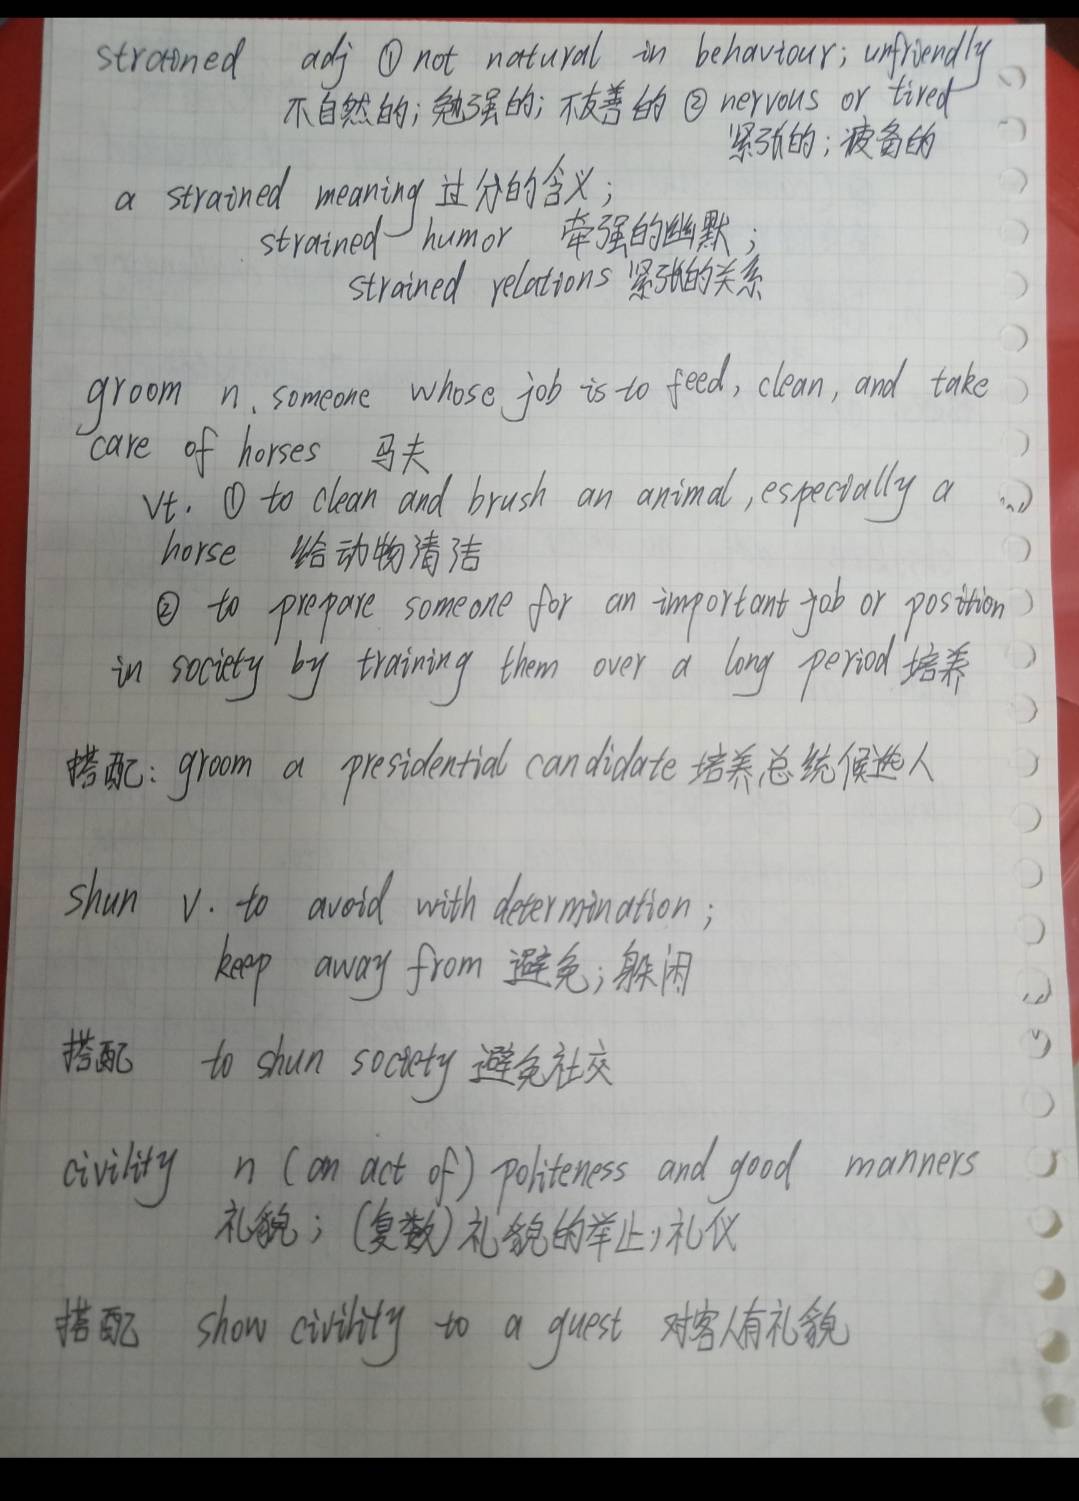 strained adj ① not natural in behaviour; unfriendly
不自然的; 勉强的; 不友善的 ② nervous or tired
紧张的; 疲惫的
a strained meaning 过分的含义;
strained humor 牵强的幽默;
strained relations 紧张的关系
groom n. someone whose job is to feed, clean, and take
care of horses 马夫
Vt. ① to clean and brush an animal, especially a
horse 给动物清洁
② to prepare someone for an important job or position
in society by training them over a long period 培养
搭配: groom a presidential candidate 培养总统候选人
shun v. to avoid with determination;
keep away from 避免; 躲闭
搭配 to shun society 避免社交
civility n (an act of) politeness and good manners
礼貌; (复数) 礼貌的举止, 礼仪
搭配 show civility to a guest 对客人有礼貌